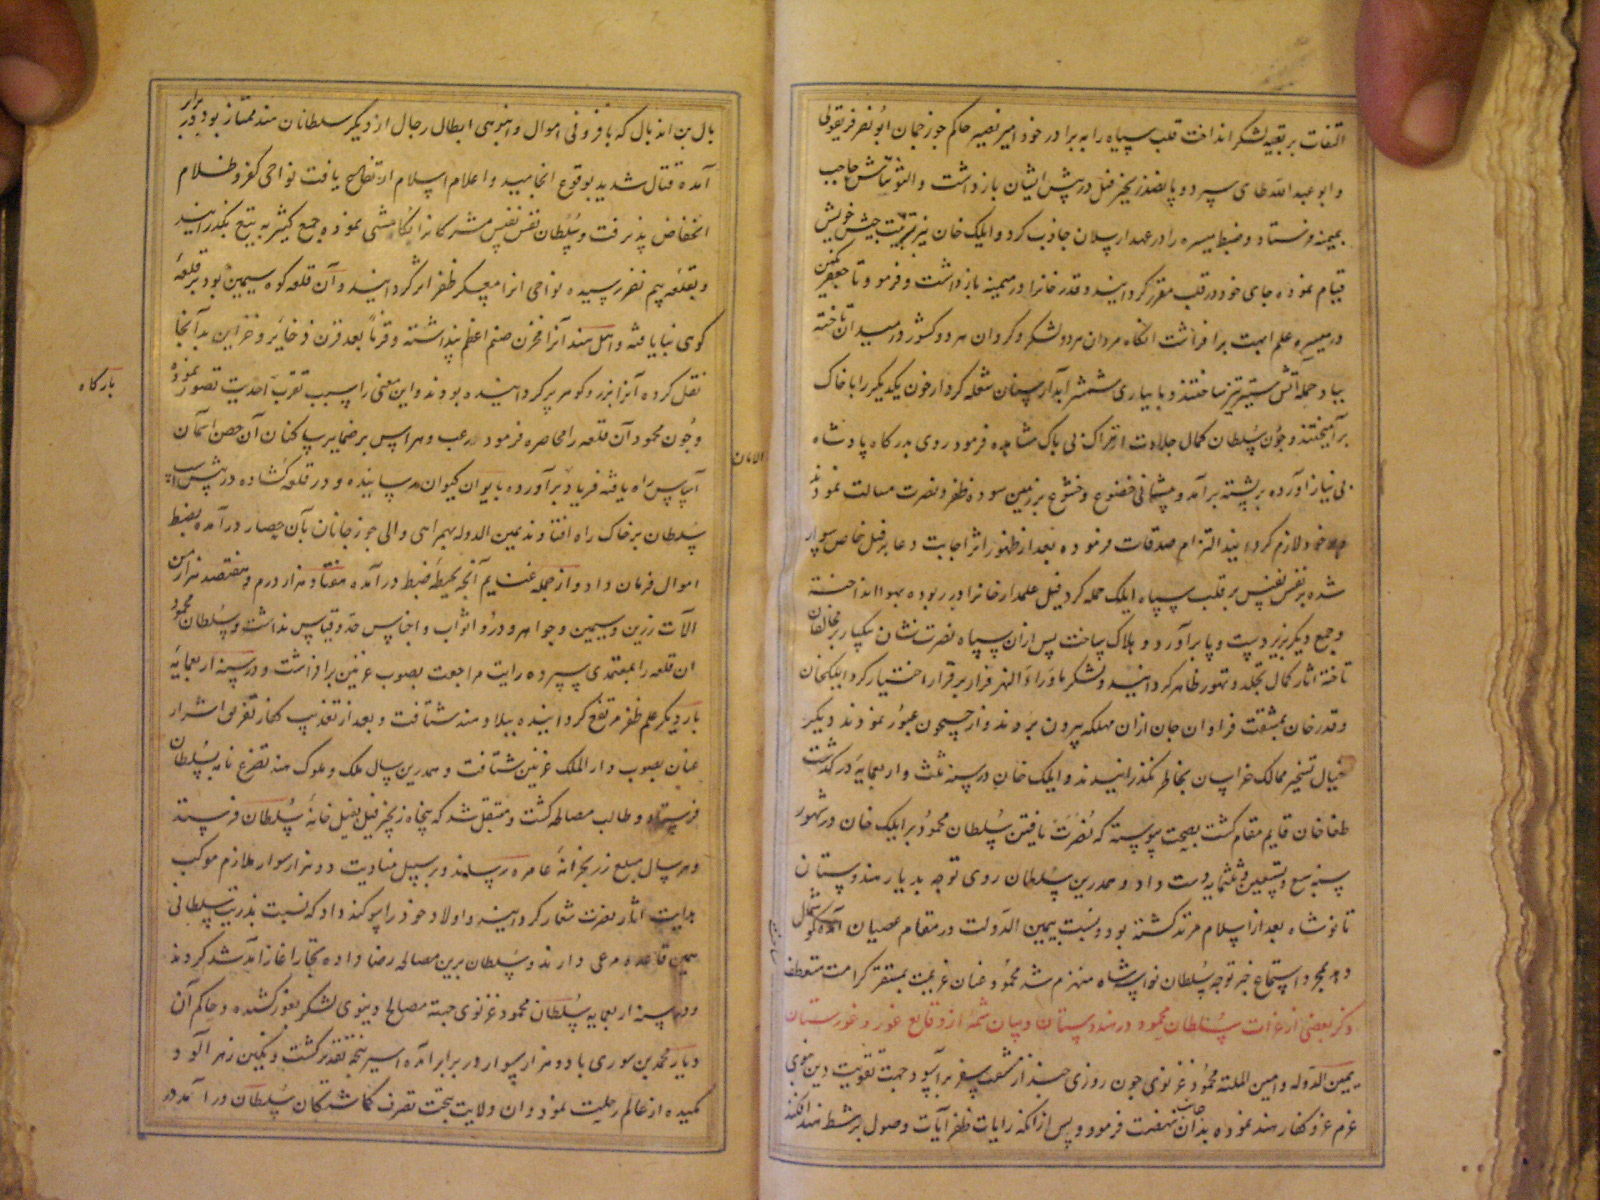 التفات بر بقیه لشکر انداخت قلب سپاه را به برادر خود امیر نصیر حاکم جوزجان ابو نصر فریقونی
و ابو عبد الله طایی سپرد و پانصد زنجیر فیل در پیش ایشان بازداشت و التونتاش حاجب
بمیمنه فرستاد و ضبط میسره را در عهد ارسلان جاذب کرد و ایلک خان نیز بتربیت جیش خویش
قیام نموده جای خود در قلب مقرر گردانید و قدر خانرا در میمنه بازداشت و فرمود تا جعفر تکین
در میسره علم ابهت برافراشت آنگاه مردان هر دو لشکر و گردان هر دو کشور در میدان تاخته
بباد حمله آتش ستیز تیز ساختند و بآبیاری شمشیر آبدار سنان شعله کردار خون یکدیگر را با خاک
برآمیختند و چون سلطان کمال جلادت از اتراک بی باک مشاهده فرمود روی بدرگاه پادشاه
بی نیاز آورده بر پشته برآمد و پیشانی خضوع و خشوع بر زمین سوده ظفر و نصرت مسألت نمود
خود لازم گردانید التزام صدقات فرموده بعد از ظهور اثر اجابت دعا بر فیل خاص سوار
شده بنفس نفیس بر قلب سپاه ایلک حمله کرد فیل علمدار خانرا در ربوده بهوا انداخت
و جمع دیگر بزیر دست و پا برآورد و هلاک ساخت پس ازان سپاه نصرت نشان بیکبار بر مخالفان
تاخته آثار کمال تجلد و تهور ظاهر گردانیدند و لشکر ماوراء النهر فرار بر قرار اختیار کرد ایلکخان
و قدر خان بمشقت فراوان جان ازان مهلکه بیرون بردند و از جیحون عبور نمودند دیگر
خیال تسخیر ممالک خراسان بخاطر نگذرانیدند و ایلک خان در سنه ثلث و اربعمایه درگذشت
طغا خان قایم مقام گشت بصحت پیوسته که نصرت یافتن سلطان محمود بر ایلک خان در شهور
سنه سبع و تسعین و ثلثمایه دست داد و همدرین سلطان روی توجه بدیار هندوستان
تا نوشاه بعد از اسلام مرتد گشته بود و نسبت بیمین الدولت در مقام عصیان آمده گوشمال
دهد بمجرد استماع خبر توجه سلطان نواسه شاه منهزم شد محمود عنان عزیمت بمستقر کرامت منعطف
ذکر بعضی از غزات سلطان محمود در هندوستان و بیان شمه از وقایع غور و غورستان
یمین الدوله و امین الملته محمود غزنوی چون روزی چند از مشقت سفر برآسود جهت تقویت دین نبوی
عزم غزو کفار هند نموده بدان جانب نهضت فرمود و پس از آنکه رایات ظفر آیات وصول بر شط هند افکند
الامان
بال بن اندبال که بافزونی اموال و انبوهی ابطال رجال از دیگر سلطانان هند ممتاز بود در برابر
آمده قتال شدید بوقوع انجامید و اعلام اسلام ارتفاع یافت نواحی کفر و ظلام
انخفاض پذیرفت و سلطان بنفس نفیس مشرکانرا تکامشی نموده جمع کثیر به تیغ بگذرانید
و بقلعه بهیم نغر رسیده نواحی آنرا معسکر ظفر اثر گردانید و آن قلعه کوه سیمین بود بر قله
کوهی بنا یافته و اهل هند آنرا مخزن صنم اعظم پنداشته و قرناً بعد قرن ذخایر و خزاین بدآنجا
نقل کرده آنرا بزر و گوهر پر گردانیده بودند و این معنی را سبب تقرب احدیت تصور نموده
و چون محمود آن قلعه را محاصره فرمود رعب و هراس بر ضمایر ساکنان آن حصن آسمان
آساس راه یافته فریاد برآورده بایوان کیوان رسانیده و در قلعه گشاده در پیش اسب
سلطان بر خاک راه افتادند یمین الدوله بهمراهی والی جوزجانان بآن حصار درآمده بضبط
اموال فرمان داد و از جمله غنایم آنچه بحیطه ضبط درآمده هفتاد هزار درم و هفتصد هزار من
آلات زرین و سیمین و جواهر و درر و اثواب و اجناس حد و قیاس نداشت و سلطان محمود
ان قلعه را بمعتمدی سپرده رایت مراجعت بصوب غزنین برافراشت و در سنه اربعمایه
بار دیگر علم ظفر مرتفع گردانیده ببلاد هند شتافت و بعد از تعذیب کفار تفریق اشرار
عنان بصوب دار الملک غزنین شتافت و همدرین سال ملک و ملوک هند بتضرع نامه بسلطان
فرستاد و طالب مصالحه گشت و متقبل شد که پنجاه زنجیر فیل بفیل خانهٔ سلطان فرستد
و هر سال مبلغ زر بخزانهٔ عامره رساند و بر سبیل مناوبت دو هزار سوار ملازم موکب
هدایت آثار نصرت شعار گردانید و اولاد خود را سوگند داد که نسبت بذریت سلطانی
همین قاعده مرعی دارند و سلطان برین مصالحه رضا داده تجار آغاز آمد شد کردند
و در سنه اربعمایه سلطان محمود غزنوی جهته مصالح دنیوی لشکر بغور کشیده و حاکم آن
دیار محمد بن سوری با ده هزار سوار در برابر آمده اسیر پنجه تقدیر گشت و نگین زهر آلود
مکیده از عالم رحلت نمود و ان ولایت بتحت تصرف گماشتگان سلطان درآمد در
بارگاه